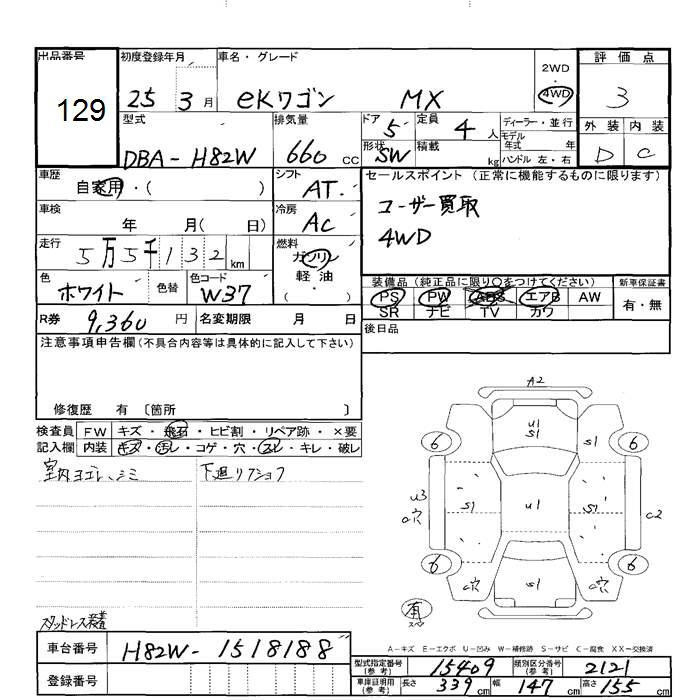 出品番号 初度登録年月 車名・グレード 2WD・ 評価点
129 25 3月 eKワゴン MX 4WD 3
型式 排気量 ドア 5 定員 4人 ディーラー・並行 外装 内装
DBA-H82W 660cc 形状 SW 積載 kg モデル年式 年 ハンドル 左・右 D C
車歴 自家用・( ) シフト AT. セールスポイント (正常に機能するものに限ります)
車検 年 月( 日) 冷房 AC ユーザー買取
走行 5万5千132km 燃料 ガソリン 4WD
軽・油
( )
色 ホワイト 色替 色コード W37 装備品 (純正品に限り○をつけてください) 新車保証書
PS PW ABS エアB AW 有・無
SR ナビ TV カワ
R券 9,360円 名変期限 月 日 後日品
注意事項申告欄(不具合内容等は具体的に記入して下さい)
修復歴 有 〔箇所 〕
検査員 FW キズ・飛石・ヒビ割・リペア跡・×要
記入欄 内装 キズ・汚レ・コゲ・穴・スレ・キレ・破レ
室内ヨゴレ、シミ 下廻リ
A2
U1
S1 S1
6 6
U3 S1 U1 S1 C2
穴
6 6
穴 S1 穴
有
スタッドレス装着
A-キズ E-エクボ U-凹み W-補修跡 S-サビ C-腐食 XX-交換済
車台番号 H82W-1518188
型式指定番号(参考) 15409 類別区分番号(参考) 2121
登録番号 車庫証明用(参考) 長さ 339cm 幅 147cm 高さ 155cm